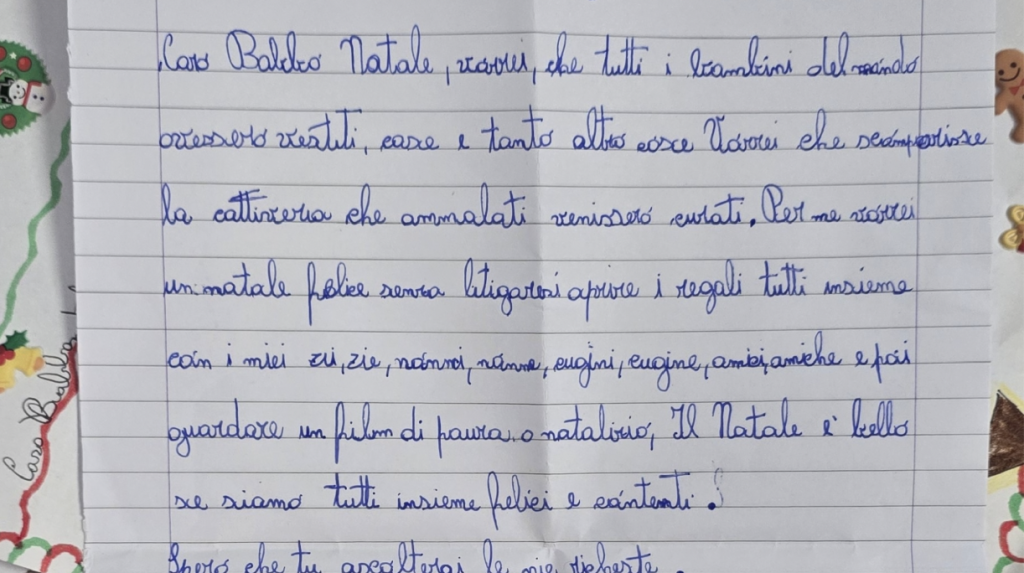 Caro Babbo Natale, vorrei, che tutti i bambini del mondo
avessero vestiti, case e tanto altro cose Vorrei che scamparisse
la cattiveria che ammalati venissero curati. Per me vorrei
un natale felice senza litigarsi aprire i regali tutti insieme
con i miei zii, zie, nonni, nonne, cugini, cugine, amici, amiche e poi
guardare un film di paura o natalizio, Il Natale è bello
se siamo tutti insieme felici e contenti!
Spero che tu ascolterai le mie richeste.
Caro Babbo